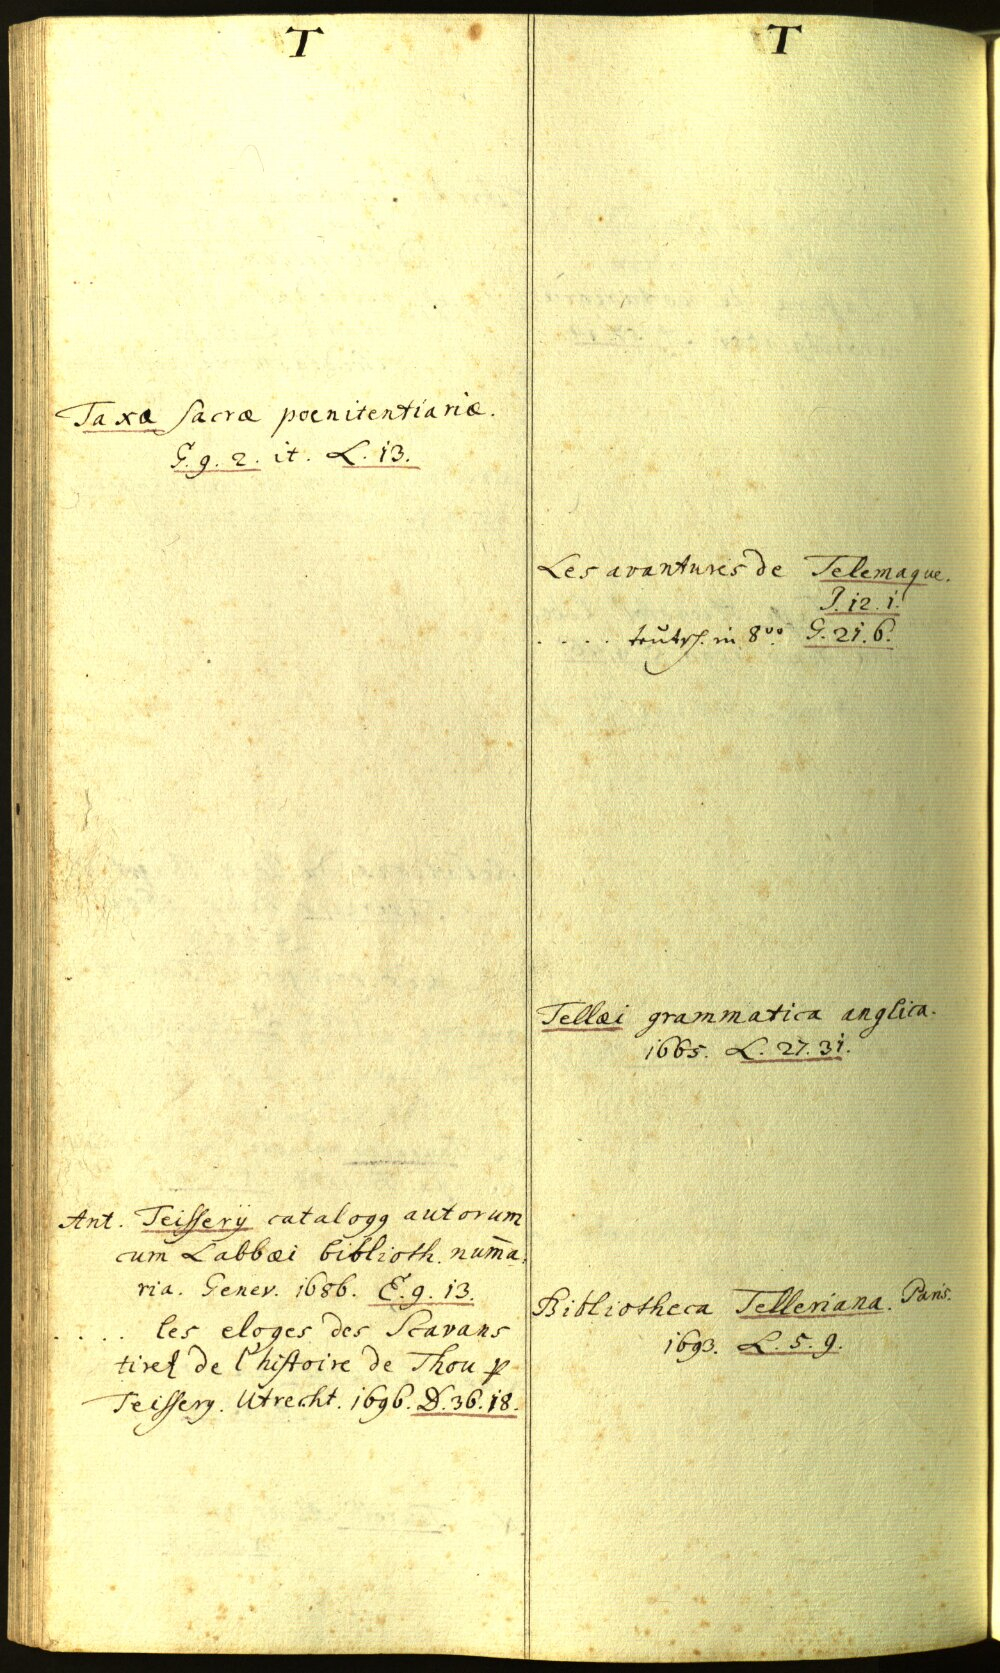 T
Taxæ sacræ poenitentiariæ.
G. 9. 2. it. L. 13.
Ant. Teisserij catalog9 autorum
cum Labbæi biblioth. num̄a,
ria. Genev. 1686. E. 9. 13.
. . . . les eloges des Scavans
tirez de l'histoire de Thou p
Teissery. Utrecht. 1696. D. 36. 18.
T
Les avantures de Telemaque.
J. 12. 1.
. . . . teütsch. in 8vo. G. 21. 6.
Tellæi grammatica anglica.
1665. L. 27. 31.
Bibliotheca Telleriana. Paris.
1693. L. 5. 9.